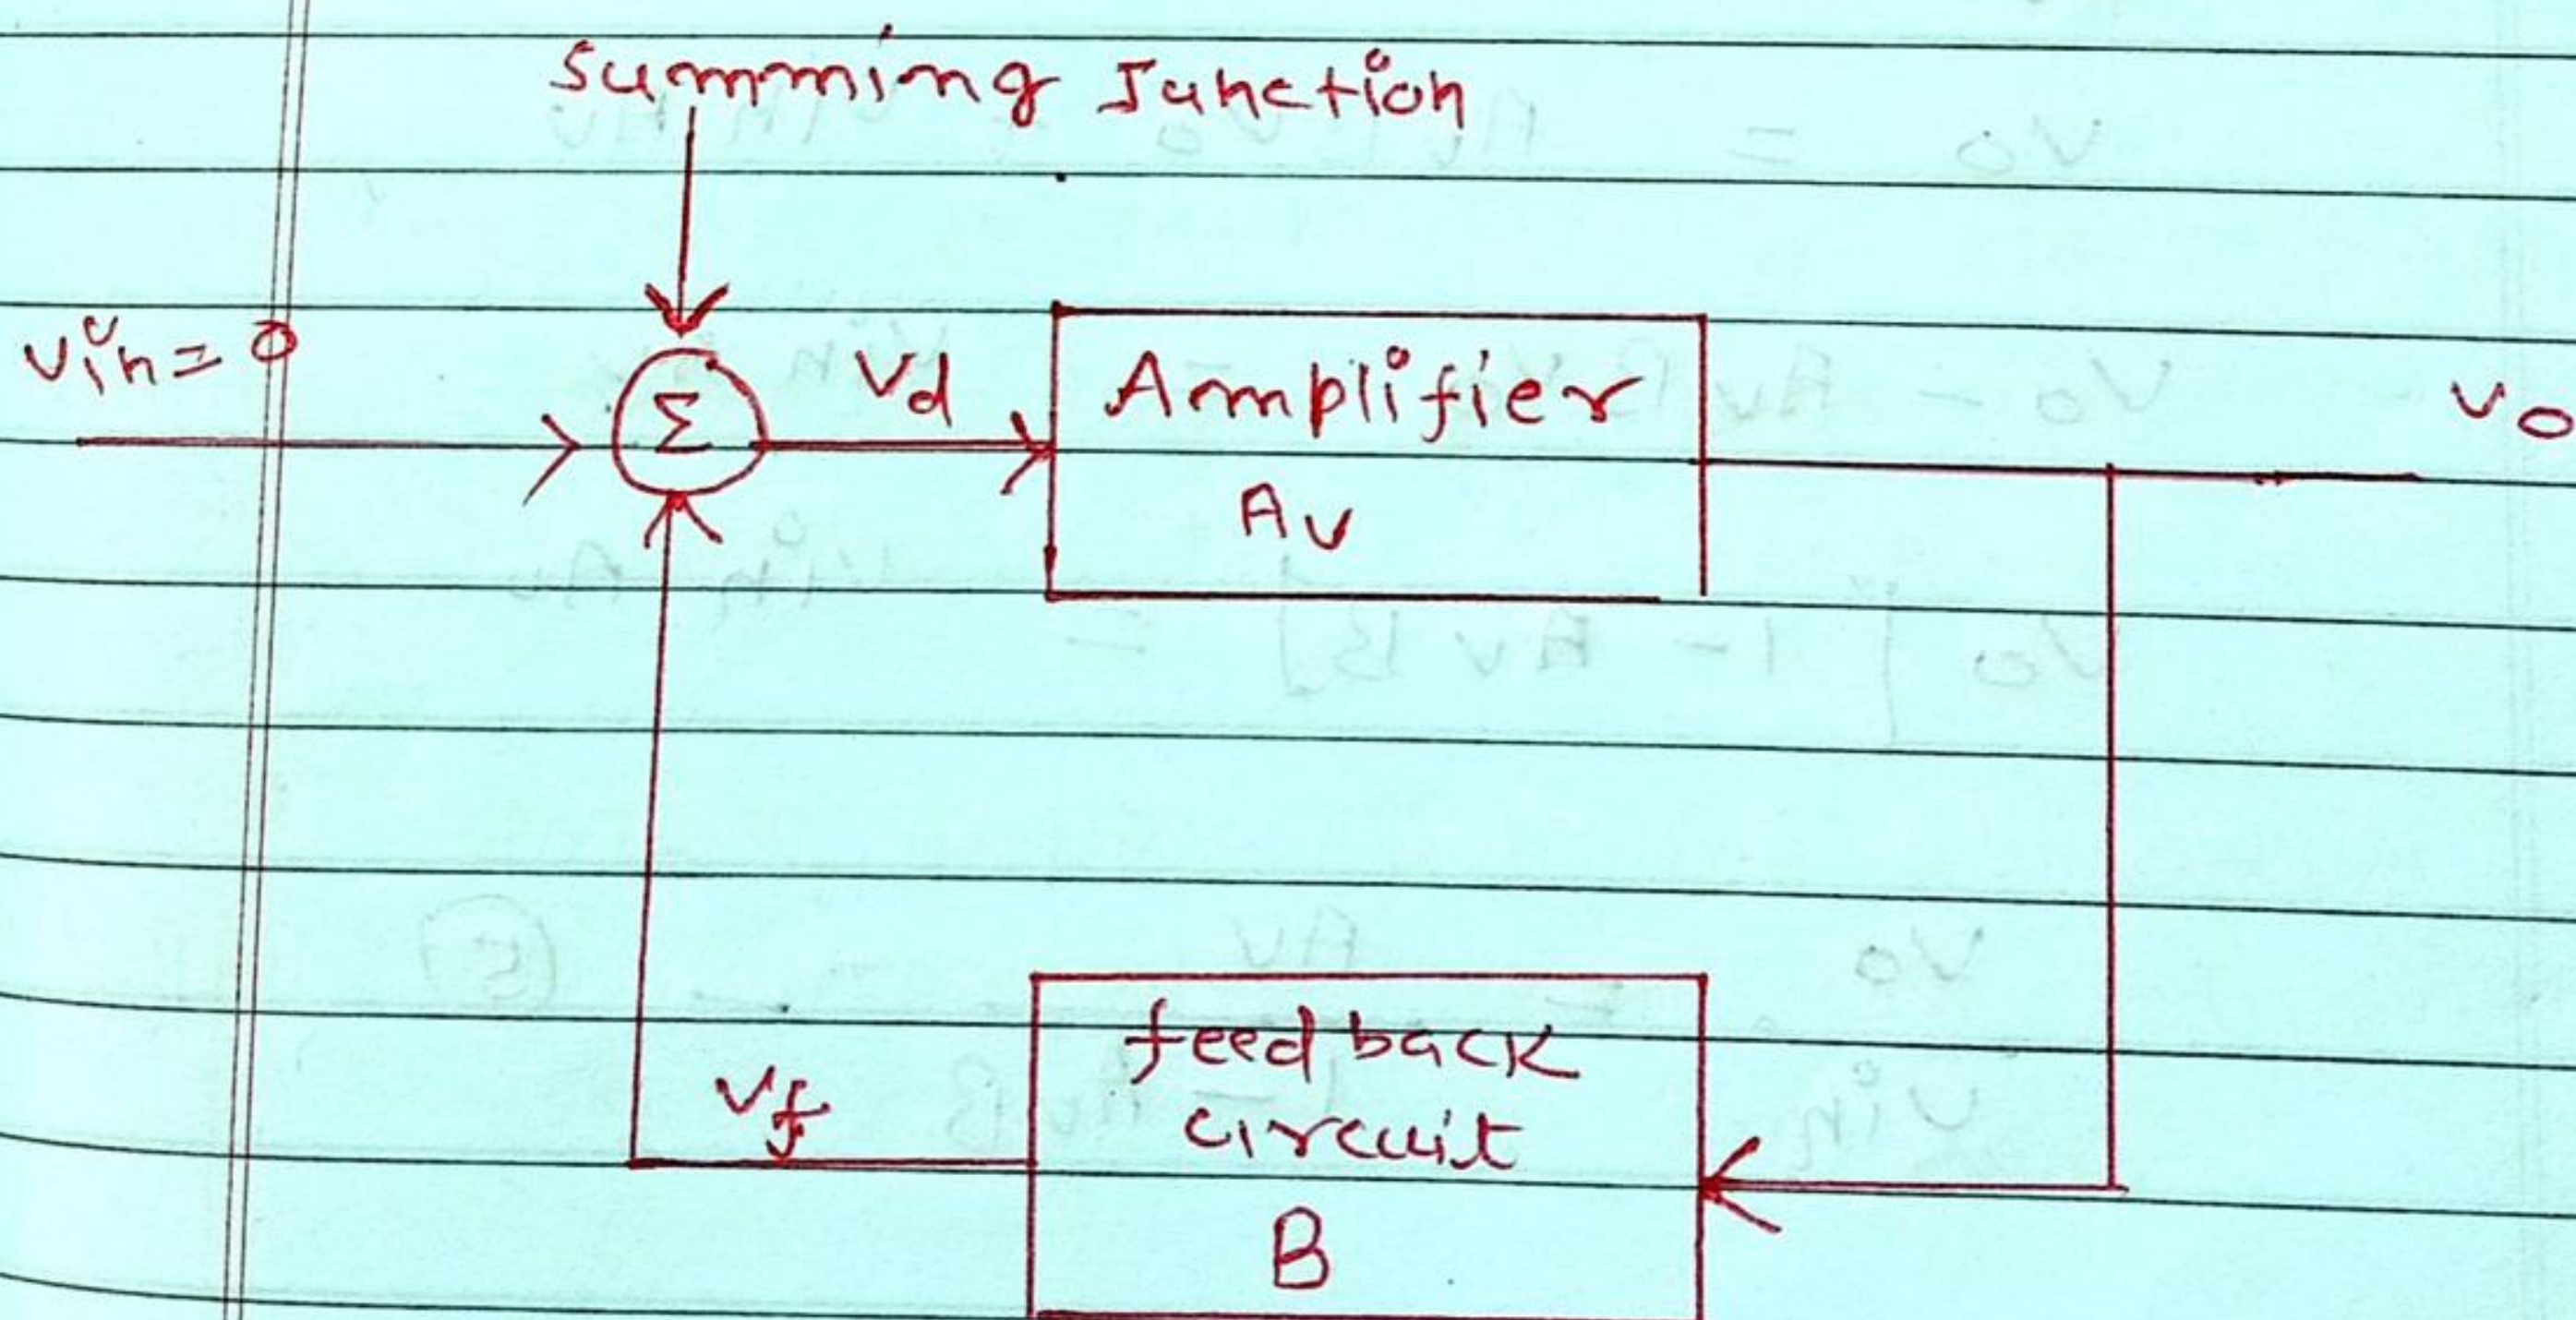 Summing Junction
Vin = 0
Σ
Vd
Amplifier
Av
Vo
Vf
feedback
circuit
B